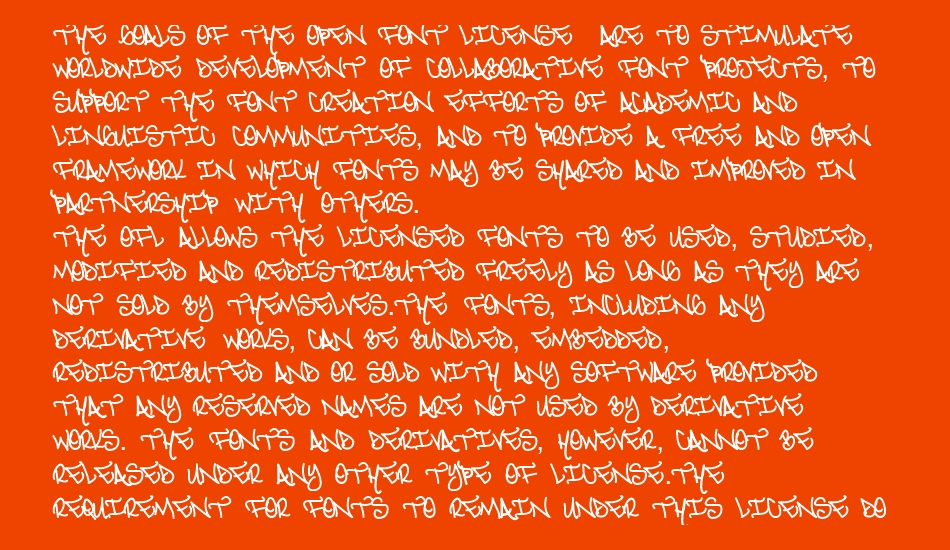 THE GOALS OF THE OPEN FONT LICENSE ARE TO STIMULATE
WORLDWIDE DEVELOPMENT OF COLLABORATIVE FONT PROJECTS, TO
SUPPORT THE FONT CREATION EFFORTS OF ACADEMIC AND
LINGUISTIC COMMUNITIES, AND TO PROVIDE A FREE AND OPEN
FRAMEWORK IN WHICH FONTS MAY BE SHARED AND IMPROVED IN
PARTNERSHIP WITH OTHERS.
THE OFL ALLOWS THE LICENSED FONTS TO BE USED, STUDIED,
MODIFIED AND REDISTRIBUTED FREELY AS LONG AS THEY ARE
NOT SOLD BY THEMSELVES.THE FONTS, INCLUDING ANY
DERIVATIVE WORKS, CAN BE BUNDLED, EMBEDDED,
REDISTRIBUTED AND OR SOLD WITH ANY SOFTWARE PROVIDED
THAT ANY RESERVED NAMES ARE NOT USED BY DERIVATIVE
WORKS. THE FONTS AND DERIVATIVES, HOWEVER, CANNOT BE
RELEASED UNDER ANY OTHER TYPE OF LICENSE.THE
REQUIREMENT FOR FONTS TO REMAIN UNDER THIS LICENSE DO